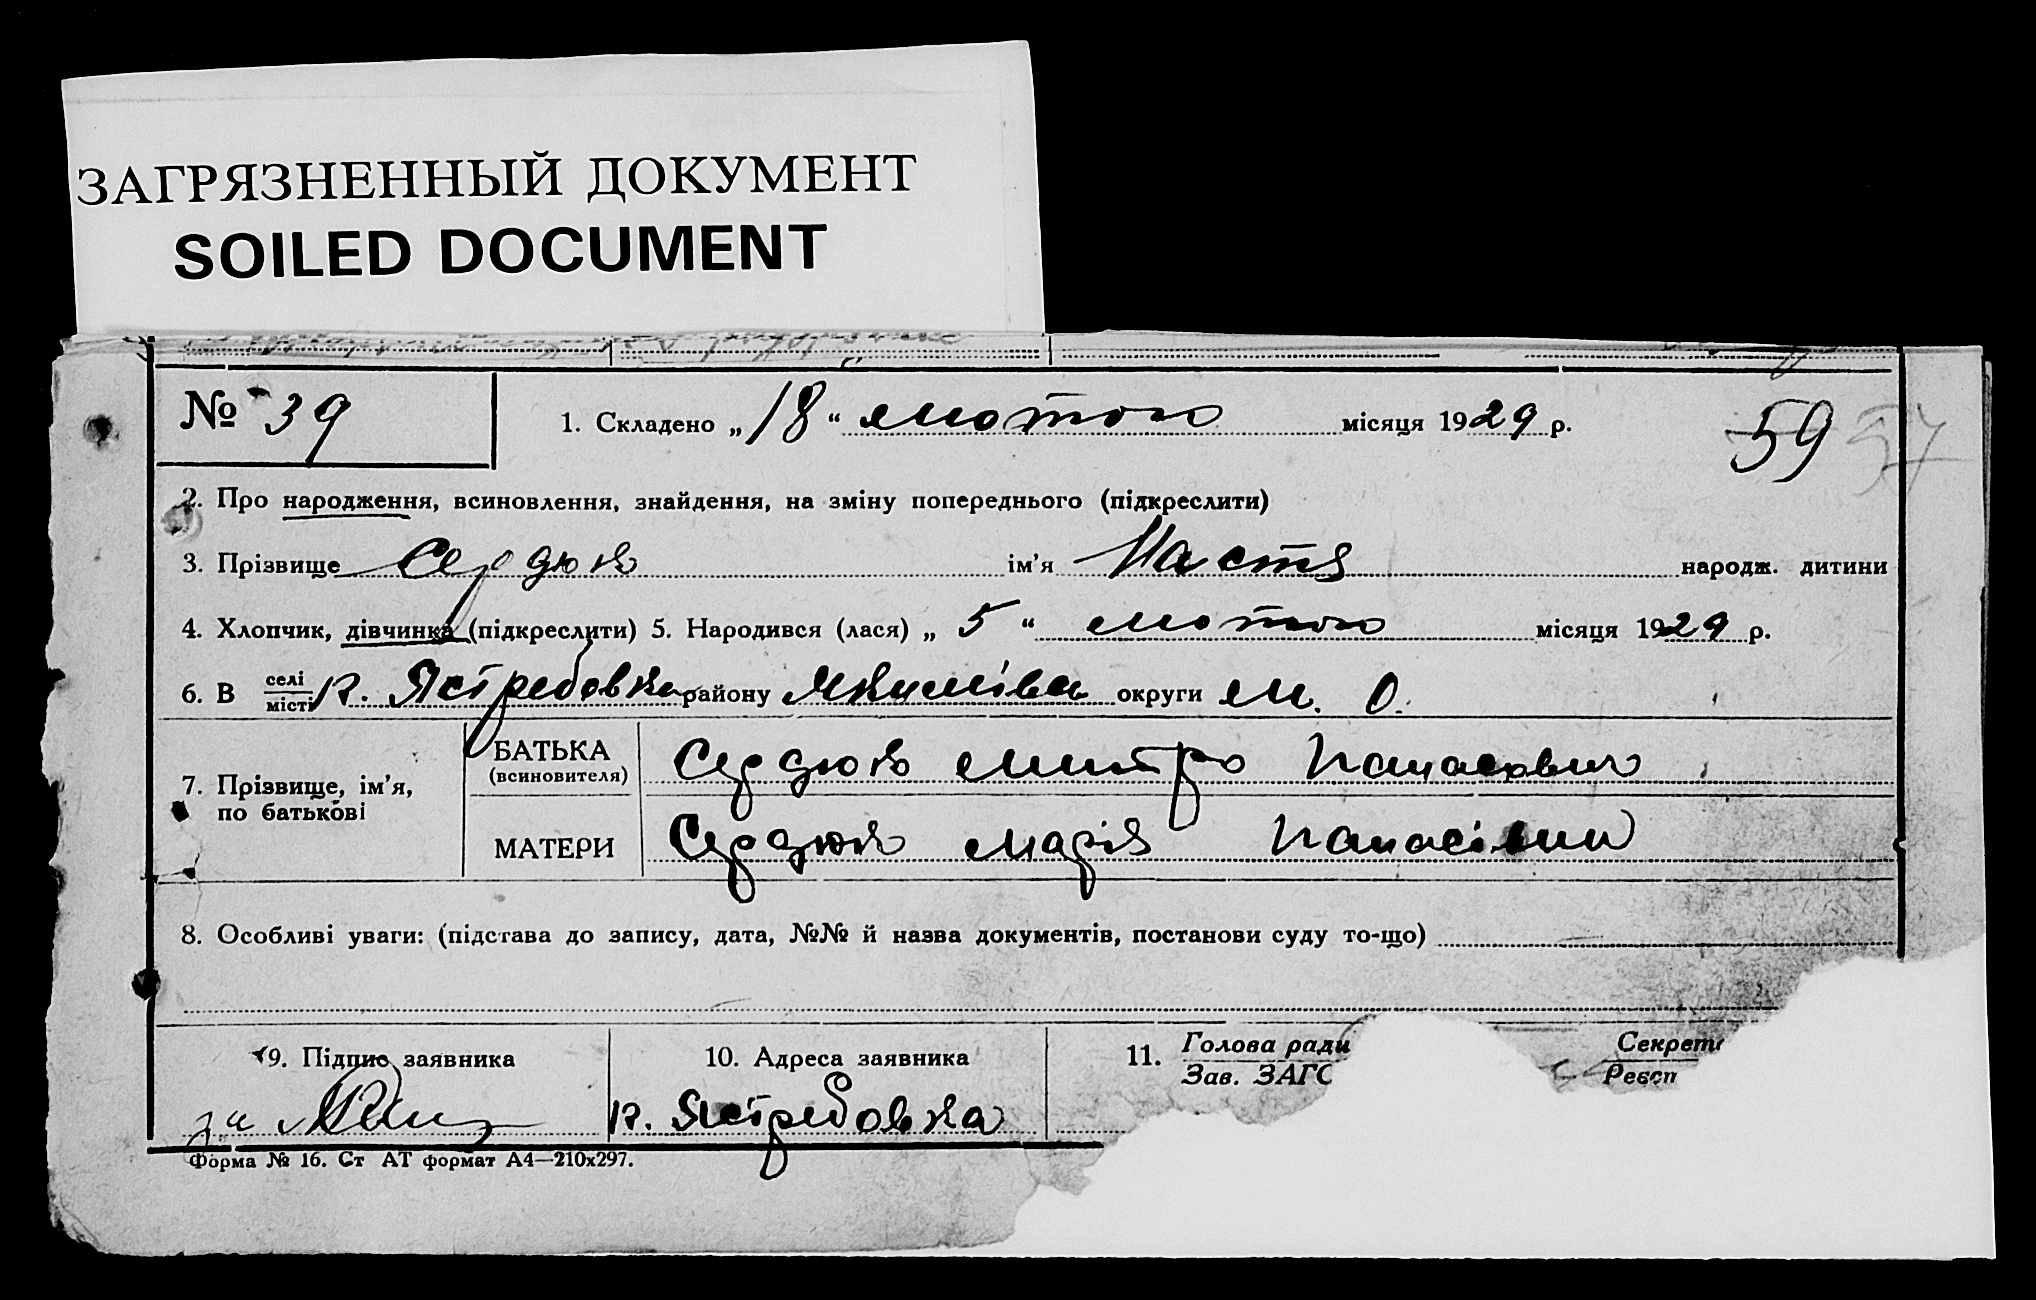 ЗАГРЯЗНЕННЫЙ ДОКУМЕНТ
SOILED DOCUMENT
№ 39
1. Складено „18“ лютого місяця 1929 р.
59 57
2. Про народження, всиновлення, знайдення, на зміну попереднього (підкреслити)
3. Прізвище Сердюк ім’я Настя народж. дитини
4. Хлопчик, дівчинка (підкреслити) 5. Народився (лася) „5“ лютого місяця 1929 р.
6. В селі місті х. Ястребовка району Якимівка округи М. О.
7. Прізвище, ім’я, по батькові
БАТЬКА (всиновителя) Сердюк Митро Панасович
МАТЕРИ Сердюк Марія Панасівни
8. Особливі уваги: (підстава до запису, дата, №№ й назва документів, постанови суду то-що)
9. Підпис заявника
10. Адреса заявника
х. Ястребовка
11. Голова ради
Зав. ЗАГС
Секрет
Реєст
за
Форма № 16. Ст АТ формат А4—210х297.